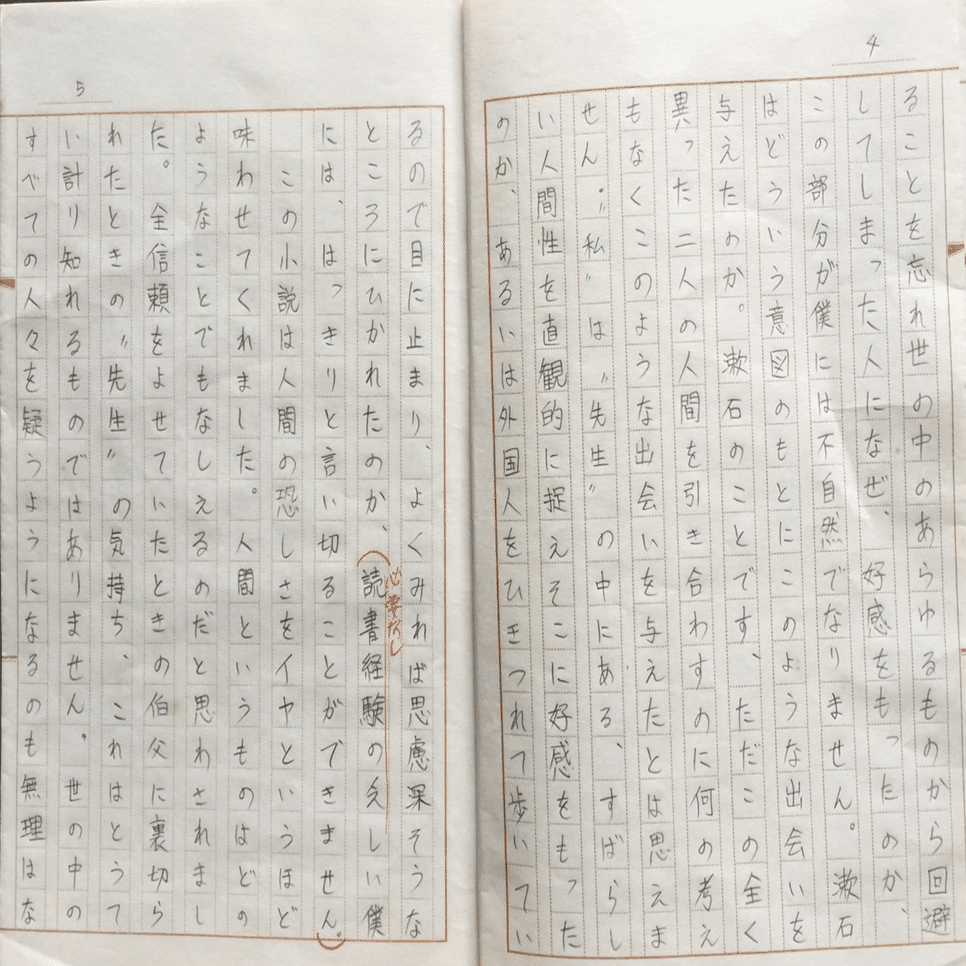 4
ることを忘れ世の中のあらゆるものから回避
してしまった人になぜ、好感をもったのか、
この部分が僕には不自然でなりません。漱石
はどういう意図のもとにこのような出会いを
与えたのか。漱石のことです、ただこの全く
異った二人の人間を引き合わすのに何の考え
もなくこのような出会いを与えたとは思えま
せん。〝私〟は〝先生〟の中にある、すばらし
い人間性を直観的に捉えそこに好感をもった
のか、あるいは外国人をひきつれて歩いてい
5
るので目に止まり、よくみれば思慮深そうな
必要なし
ところにひかれたのか、(読書経験の乏しい僕
には、はっきりと言い切ることができません。)
この小説は人間の恐しさをイヤというほど
味わせてくれました。人間というものはどの
ようなことでもなしえるのだと思わされまし
た。全信頼をよせていたときの伯父に裏切ら
れたときの〝先生〟の気持ち、これはとうて
い計り知れるものではありません。世の中の
すべての人々を疑うようになるのも無理はな